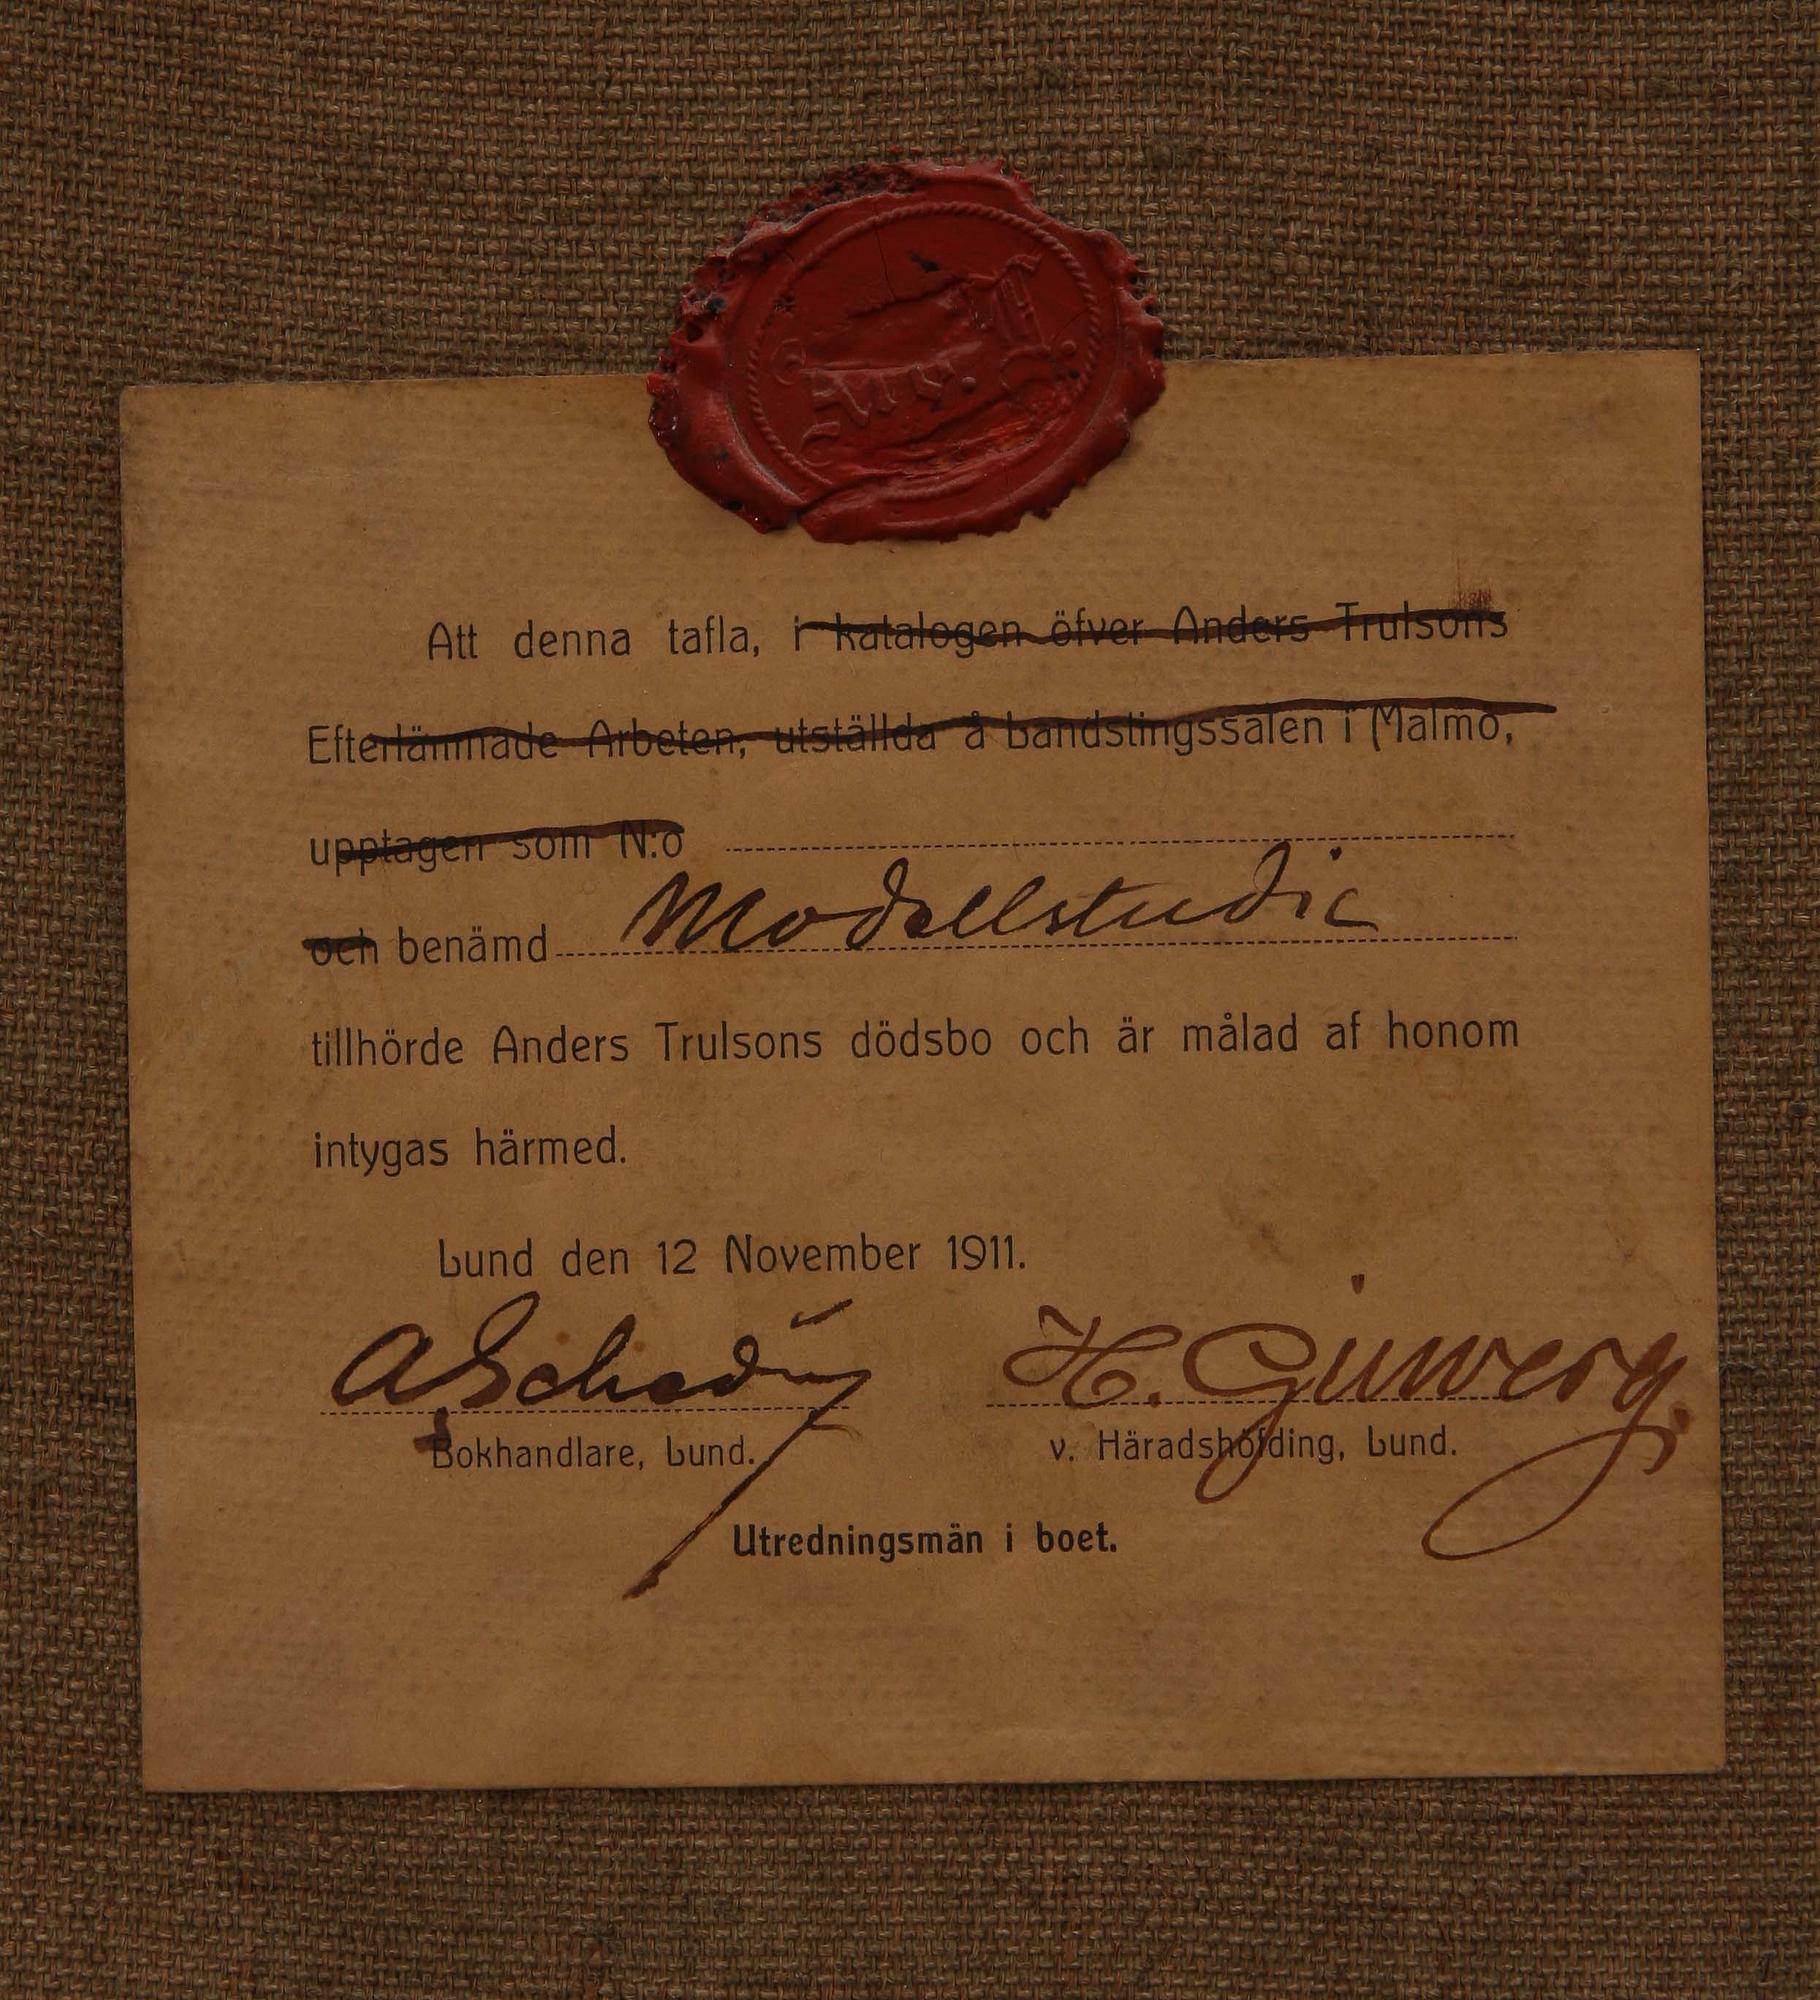 Att denna tafla, i katalogen öfver Anders Trulsons
Efterlämnade Arbeten, utställda å Landstingssalen i Malmö,
upptagen som N:o
och benämd Modellstudie
tillhörde Anders Trulsons dödsbo och är målad af honom
intygas härmed.
Lund den 12 November 1911.
H.
Bokhandlare, Lund. v. Häradshöfding, Lund.
Utredningsmän i boet.